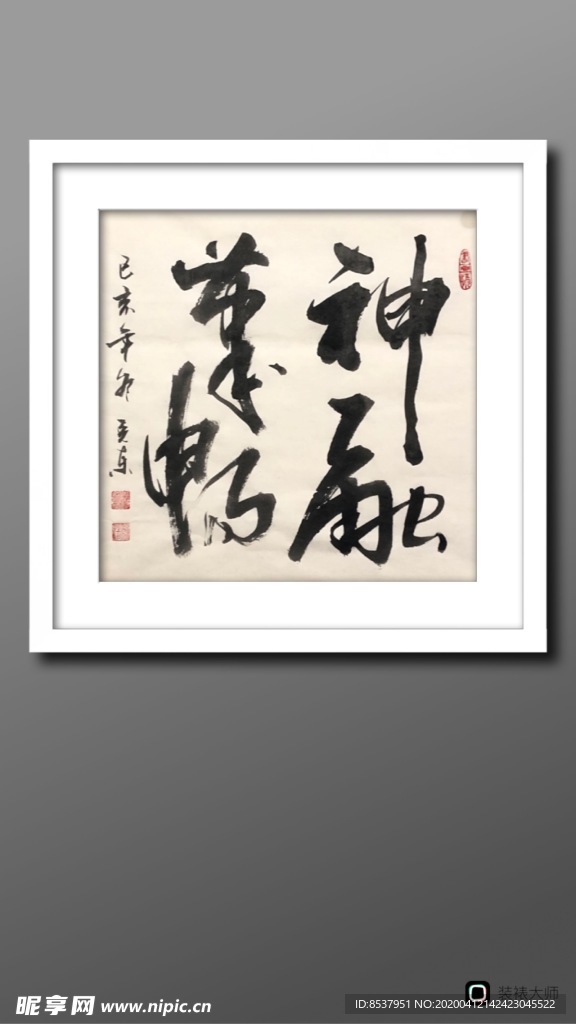 神融
筆暢
己亥年冬
装裱大师
昵享网 www.nipic.cn
ID:8537951 NO:20200412142423045522